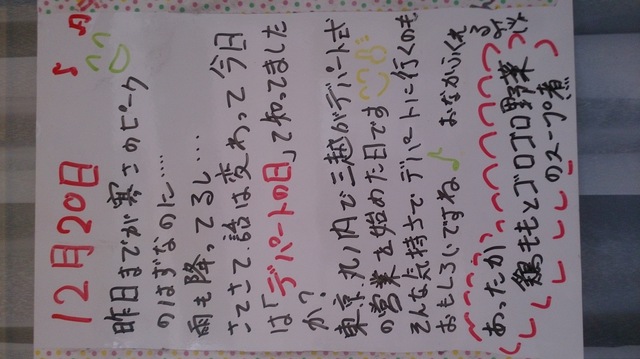 12月20日
昨日までが寒さのピーク
のはずなのに....
雨も降ってるし...
さてさて話は変わって今日
は「デパートの日」て知ってました
か?
東京丸ノ内で三越がデパート式
の営業を始めた日です
そんな気持ちでデパートに行くのも
おもしろいですね♪
おなかふくれ
る
あったか
鶏ももとゴロゴロ野菜
のスープ煮